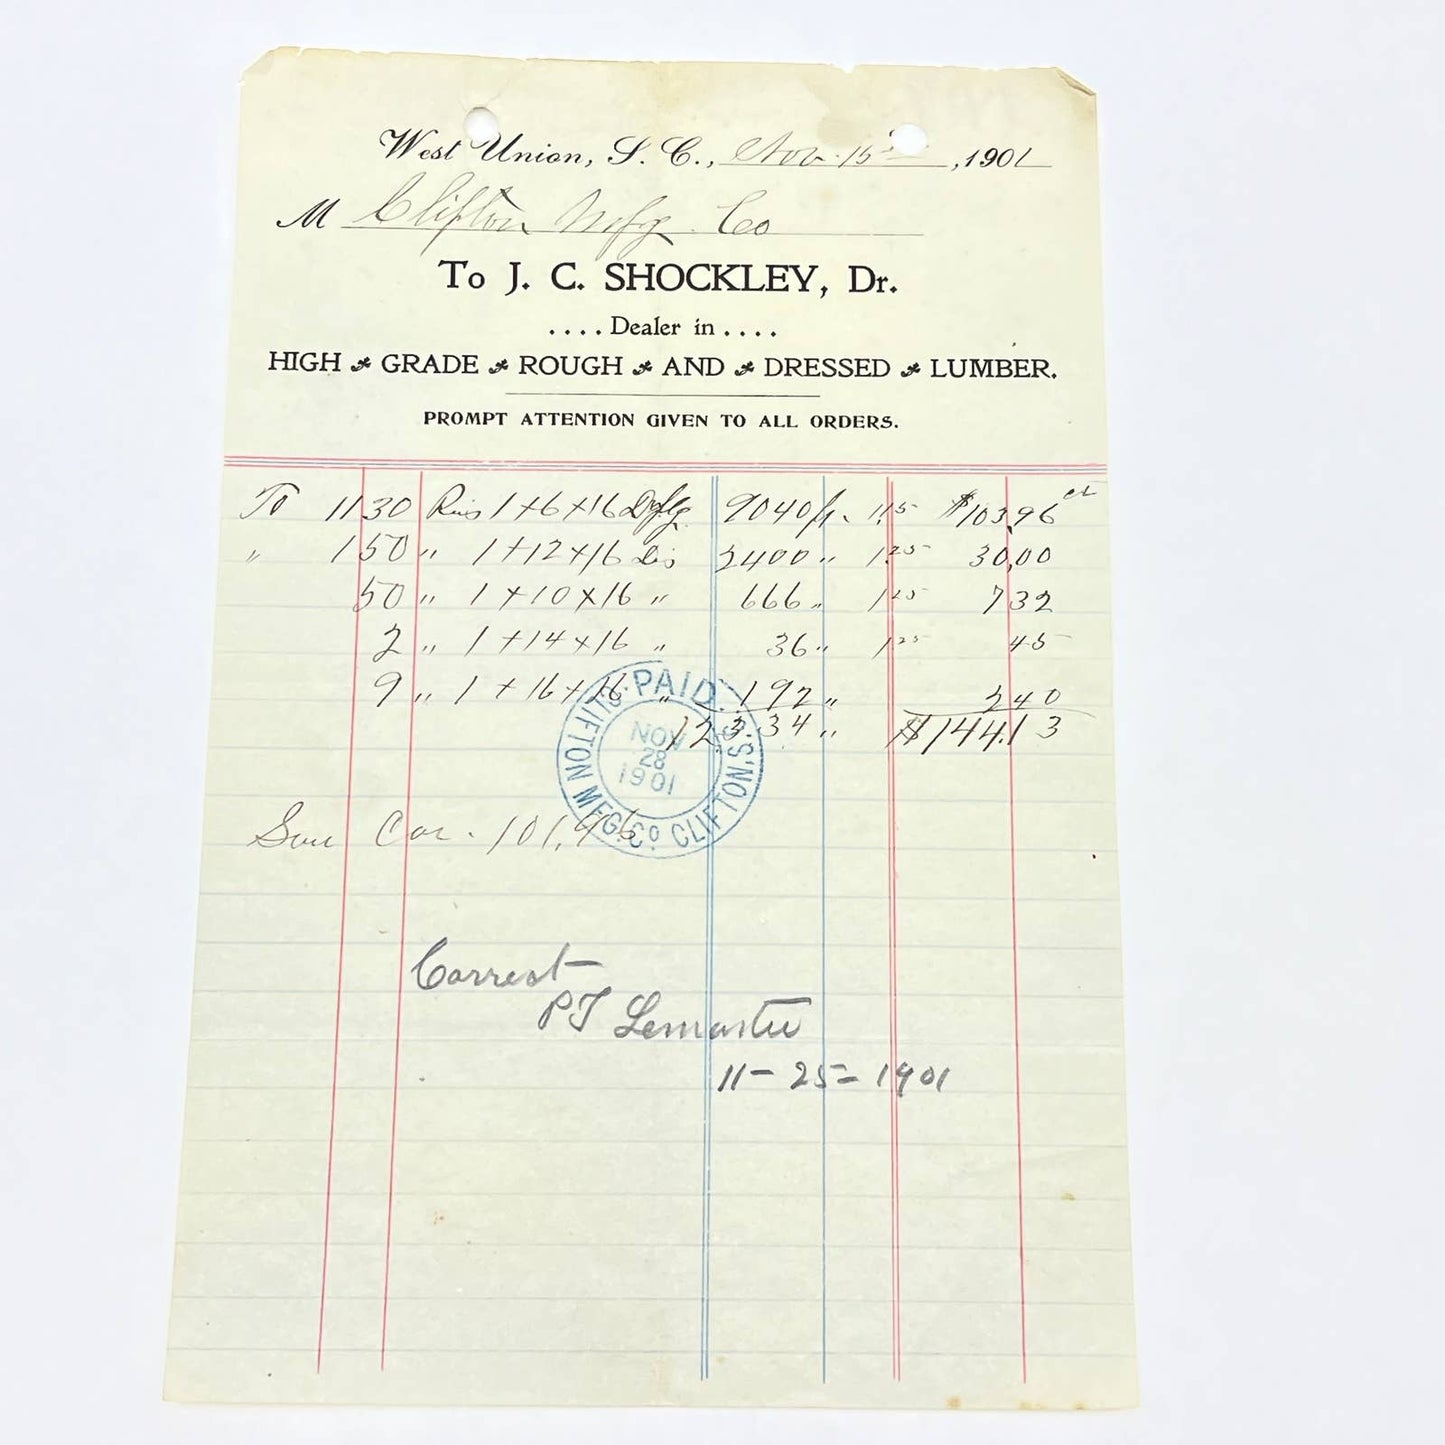 West Union, S. C., Nov. 15, 1901
M Clifton Mfg. Co
To J. C. SHOCKLEY, Dr.
.... Dealer in ....
HIGH GRADE ROUGH AND DRESSED LUMBER.
PROMPT ATTENTION GIVEN TO ALL ORDERS.
To 1130 1+6+16 9040 ft. 1.15 $103.96 ct
" 150 " 1+12+16 2400 " 1.25 30.00
50 " 1+10x16 " 666 " 1.25 7 32
2 " 1+14x16 " 36 " 1.25 45
9 " 1+16+16 " 192 " 2 40
12334 " $144.13
PAID
NOV
28
1901
CLIFTON MFG. Co CLIFTON, S.C.
Car. 101,
Correct-
PT Lemaster
11-25-1901